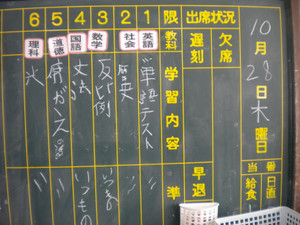 10月28日木曜日
当番
日直
給食
出席状況
欠席
遅刻
早退
限 教科 学習内容 準
1 英語 単語テスト
2 社会
3 数学 反比例
4 国語 文法 いつもの
5 道徳
6 理科